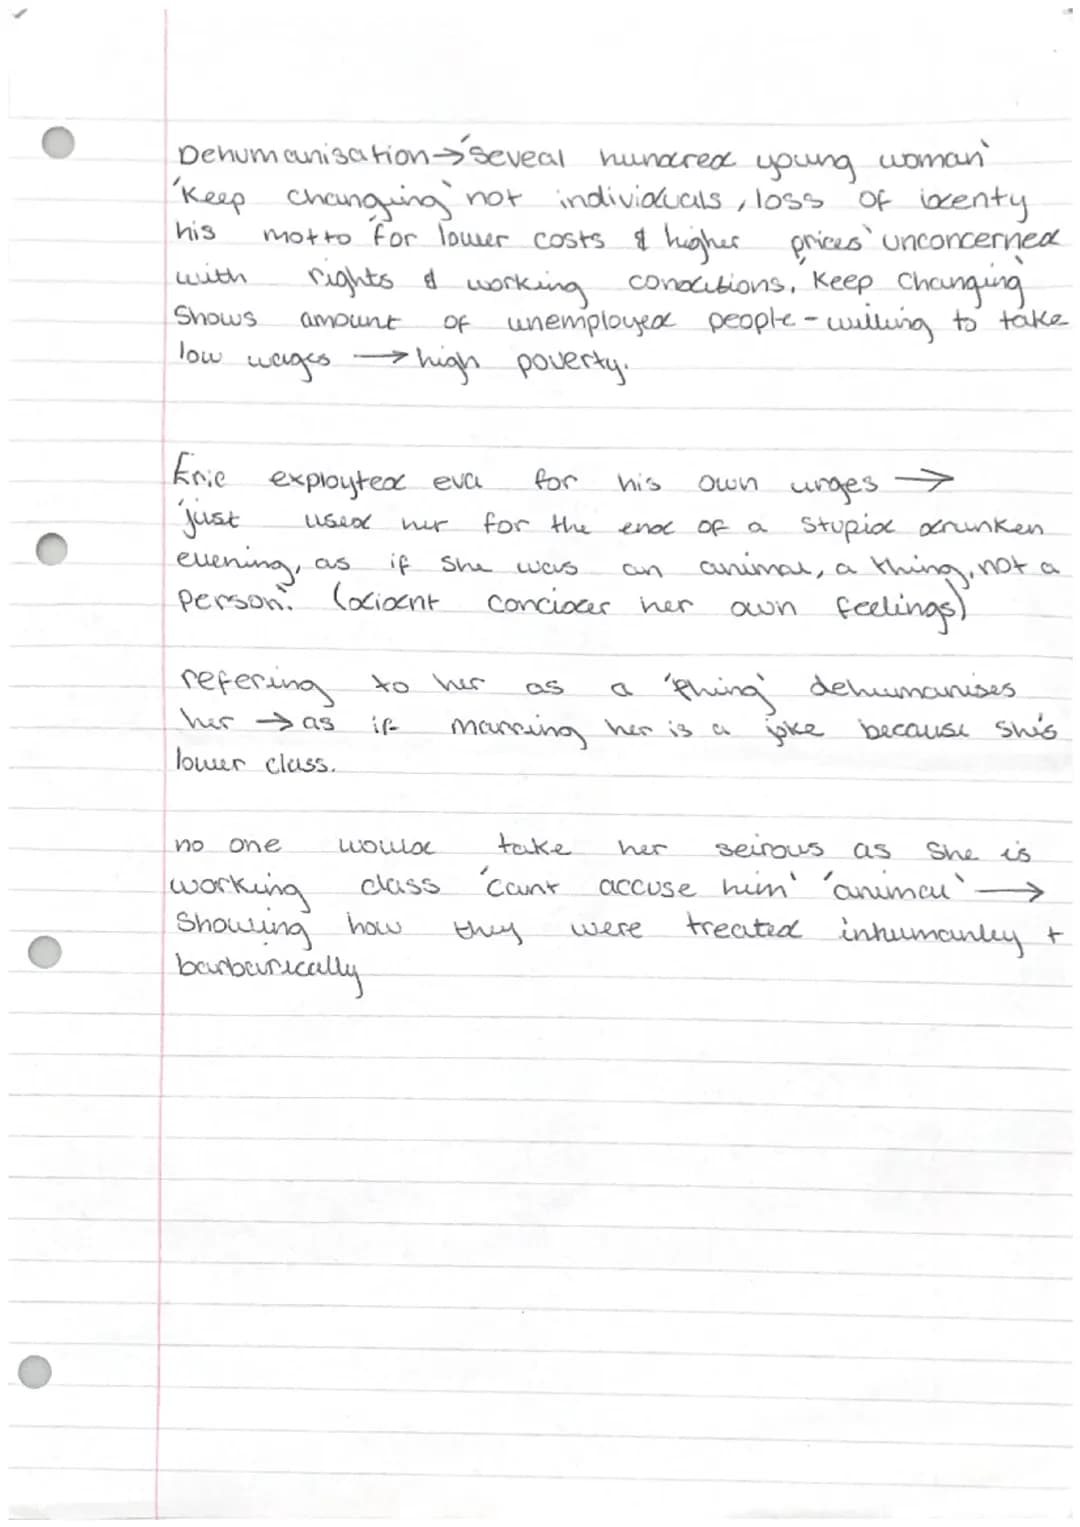 Dehumanisation → 'seveal hundred young woman'
'Keep changing' not individuals, loss of identy
his motto 'for lower costs & higher prices' unconcerned
with rights & working conditions, 'Keep Changing'
Shows amount of unemployed people - willing to take
low wages → high poverty.
Eric exployted eva for his own urges →
'just used her for the end of a stupid drunken
evening, as if she was an animal, a thing, not a
person'. (didient concider her own feelings)
refering to her as a 'thing' dehumanises
her → as if marring her is a joke because she's
lower class.
no one would take her seirous as she is
working class 'cant accuse him' 'animal' →
Showing how they were treated inhumanley +
barbarically